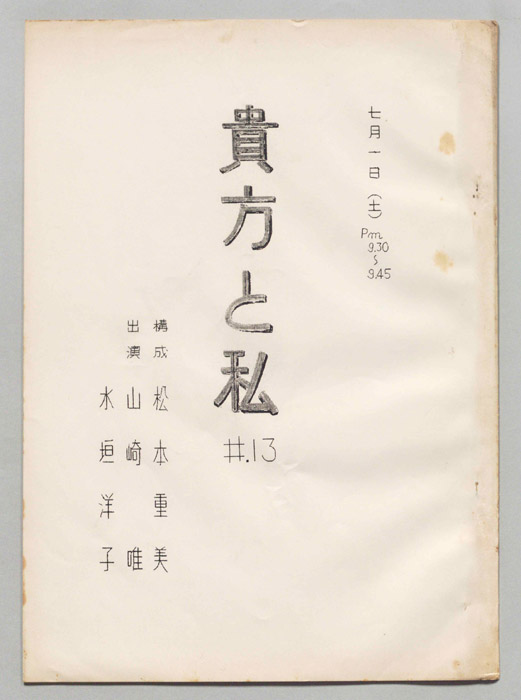 七月一日（土）
Pm
9.30
〜
9.45
貴方と私
#.13
構成　松本重美
出演　山崎唯
水垣洋子